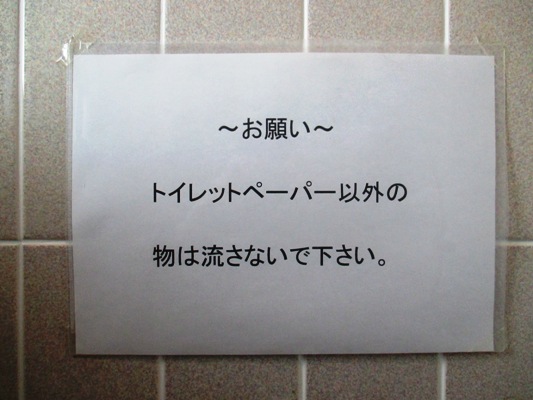 ～お願い～
トイレットペーパー以外の
物は流さないで下さい。